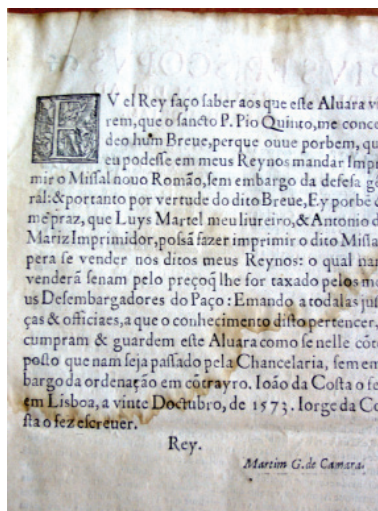 EV el Rey faço ſaber aos que eſte Aluara vi
rem, que o ſancto P. Pio Quinto, me conce
deo hum Breue, perque ouue porbem, qu
eu podeſſe em meus Reynos mandar Impri
mir o Miſſal nouo Romão, ſem embargo da defeſa ge
ral: & portanto por vertude do dito Breue, Ey porbẽ &
me praz, que Luys Martel meu liureiro, & Antonio de
Mariz Imprimidor, poſſã fazer imprimir o dito Miſſal
pera ſe vender nos ditos meus Reynos: o qual nam
venderã ſenam pelo preço q̃ lhe for taxado pelos me
us Deſembargadores do Paço: E mando a todalas juſti
ças & officiaes, a que o conhecimento diſto pertencer,
cumpram & guardem eſte Aluara como ſe nelle cõtẽ
poſto que nam ſeja paſſado pela Chancelaria, ſem em
bargo da ordenação em cõtrayro. Ioão da Coſta o fez
em Lisboa, a vinte Doctubro, de 1573. Iorge da Co
ſta o fez eſcreuer.
Rey.
Martim G. de Camara.